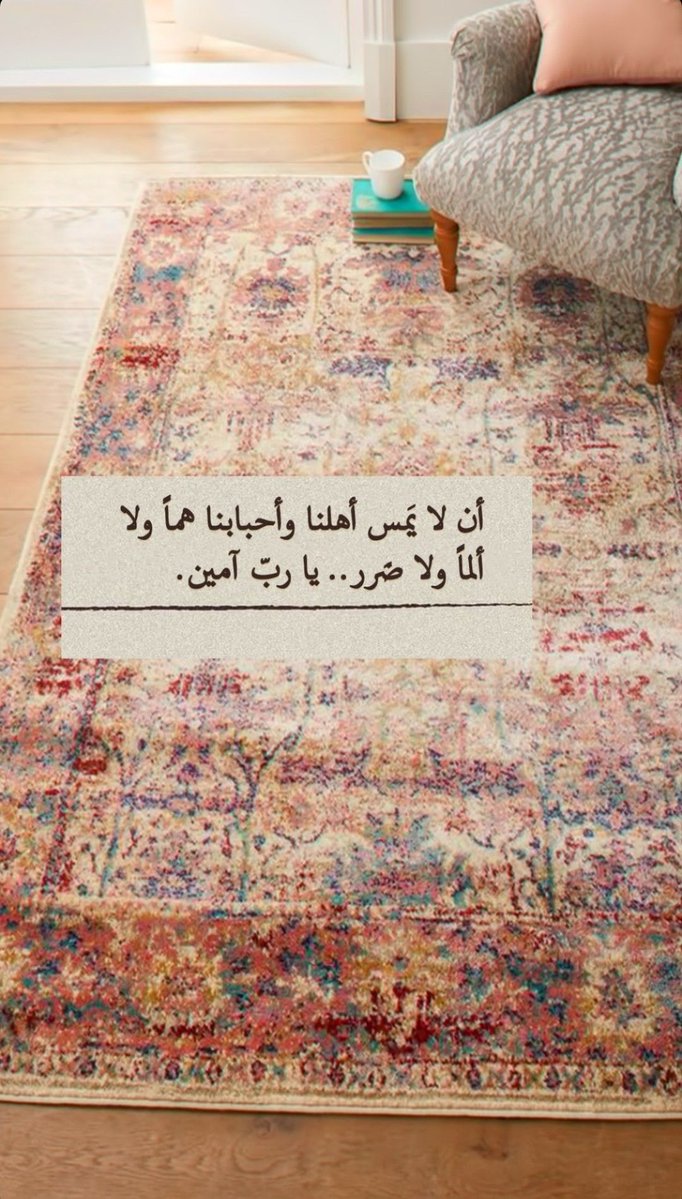 أن لا يَمس أهلنا وأحبابنا هماً ولا
ألماً ولا ضَرر.. يا ربّ آمين.